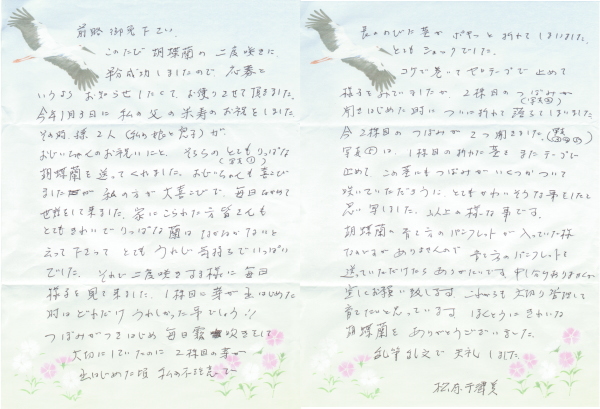 前略 御免下さい
このたび 胡蝶蘭の二度咲きに
成功しましたので 応募と
いうより お知らせしたくて、お便りさせて頂きました。
今年1月3日に 私の父の米寿のお祝をしました
その時 孫2人 (私の娘と息子) が、
おじいちゃんのお祝いにと、そちらの とてもりっぱな
(写真①)
胡蝶蘭を送ってくれました。おじいちゃんも喜び
ましたが 私の方が大喜びで、毎日ながめて
世話をして来ました。家にこられた方皆さんも
とてもきれいでりっぱな蘭はなかなかないと
云って下さって とても うれしい気持ちでいっぱい
でした。それで二度咲きする様に 毎日
様子を見て来ました。1株目に芽が出はじめた
時は どれだけ うれしかった事でしょう!!
つぼみがつきはじめ 毎日霧吹きをして
大切にしていたのに 2株目の芽が
出はじめた頃 私の不注意で
長くのびた茎が ポキッと 折れてしまいました。
とてもショックでした。
コケで巻って セロテープで止めて
様子をみていましたが、2株目のつぼみが
開きはじめた時に ついに折れて 落ちてしまいました
今 2株目の つぼみが 2つ開きました。
写真④は、1株目の折れた茎を またテープで
止めて、この茎にもつぼみがいくつかついて
咲いていただろうに、とてもかわいそうな事をしたと
思い写しました。以上の様な事です。
胡蝶蘭の育て方のパンフレットが入っていた様
なかんがありませんので 育て方のパンフレットを
送っていただけたら ありがたいです。申しわけありませんが
宜しくお願い致します。これからも大切に管理して
育てたいと思っています。ほんとうにきれいな
胡蝶蘭を ありがとうございました。
乱筆乱文で失礼しました。